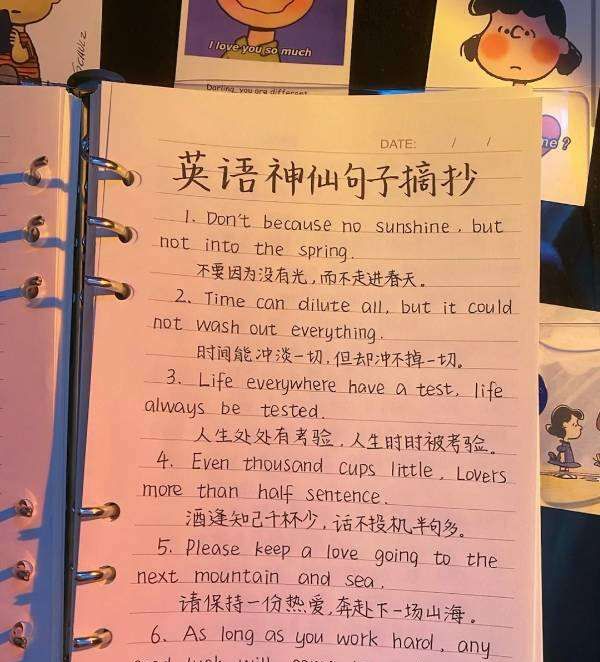 SCHULZ
I love you so much
Darling, you are different
me?
DATE: / /
英语神仙句子摘抄
1. Don't because no sunshine, but
not into the spring.
不要因为没有光，而不走进春天。
2. Time can dilute all, but it could
not wash out everything.
时间能冲淡一切，但却冲不掉一切。
3. Life everywhere have a test, life
always be tested.
人生处处有考验，人生时时被考验。
4. Even thousand cups little, Lovers
more than half sentence.
酒逢知己千杯少，话不投机半句多。
5. Please keep a love going to the
next mountain and sea.
请保持一份热爱，奔赴下一场山海。
6. As long as you work hard, any